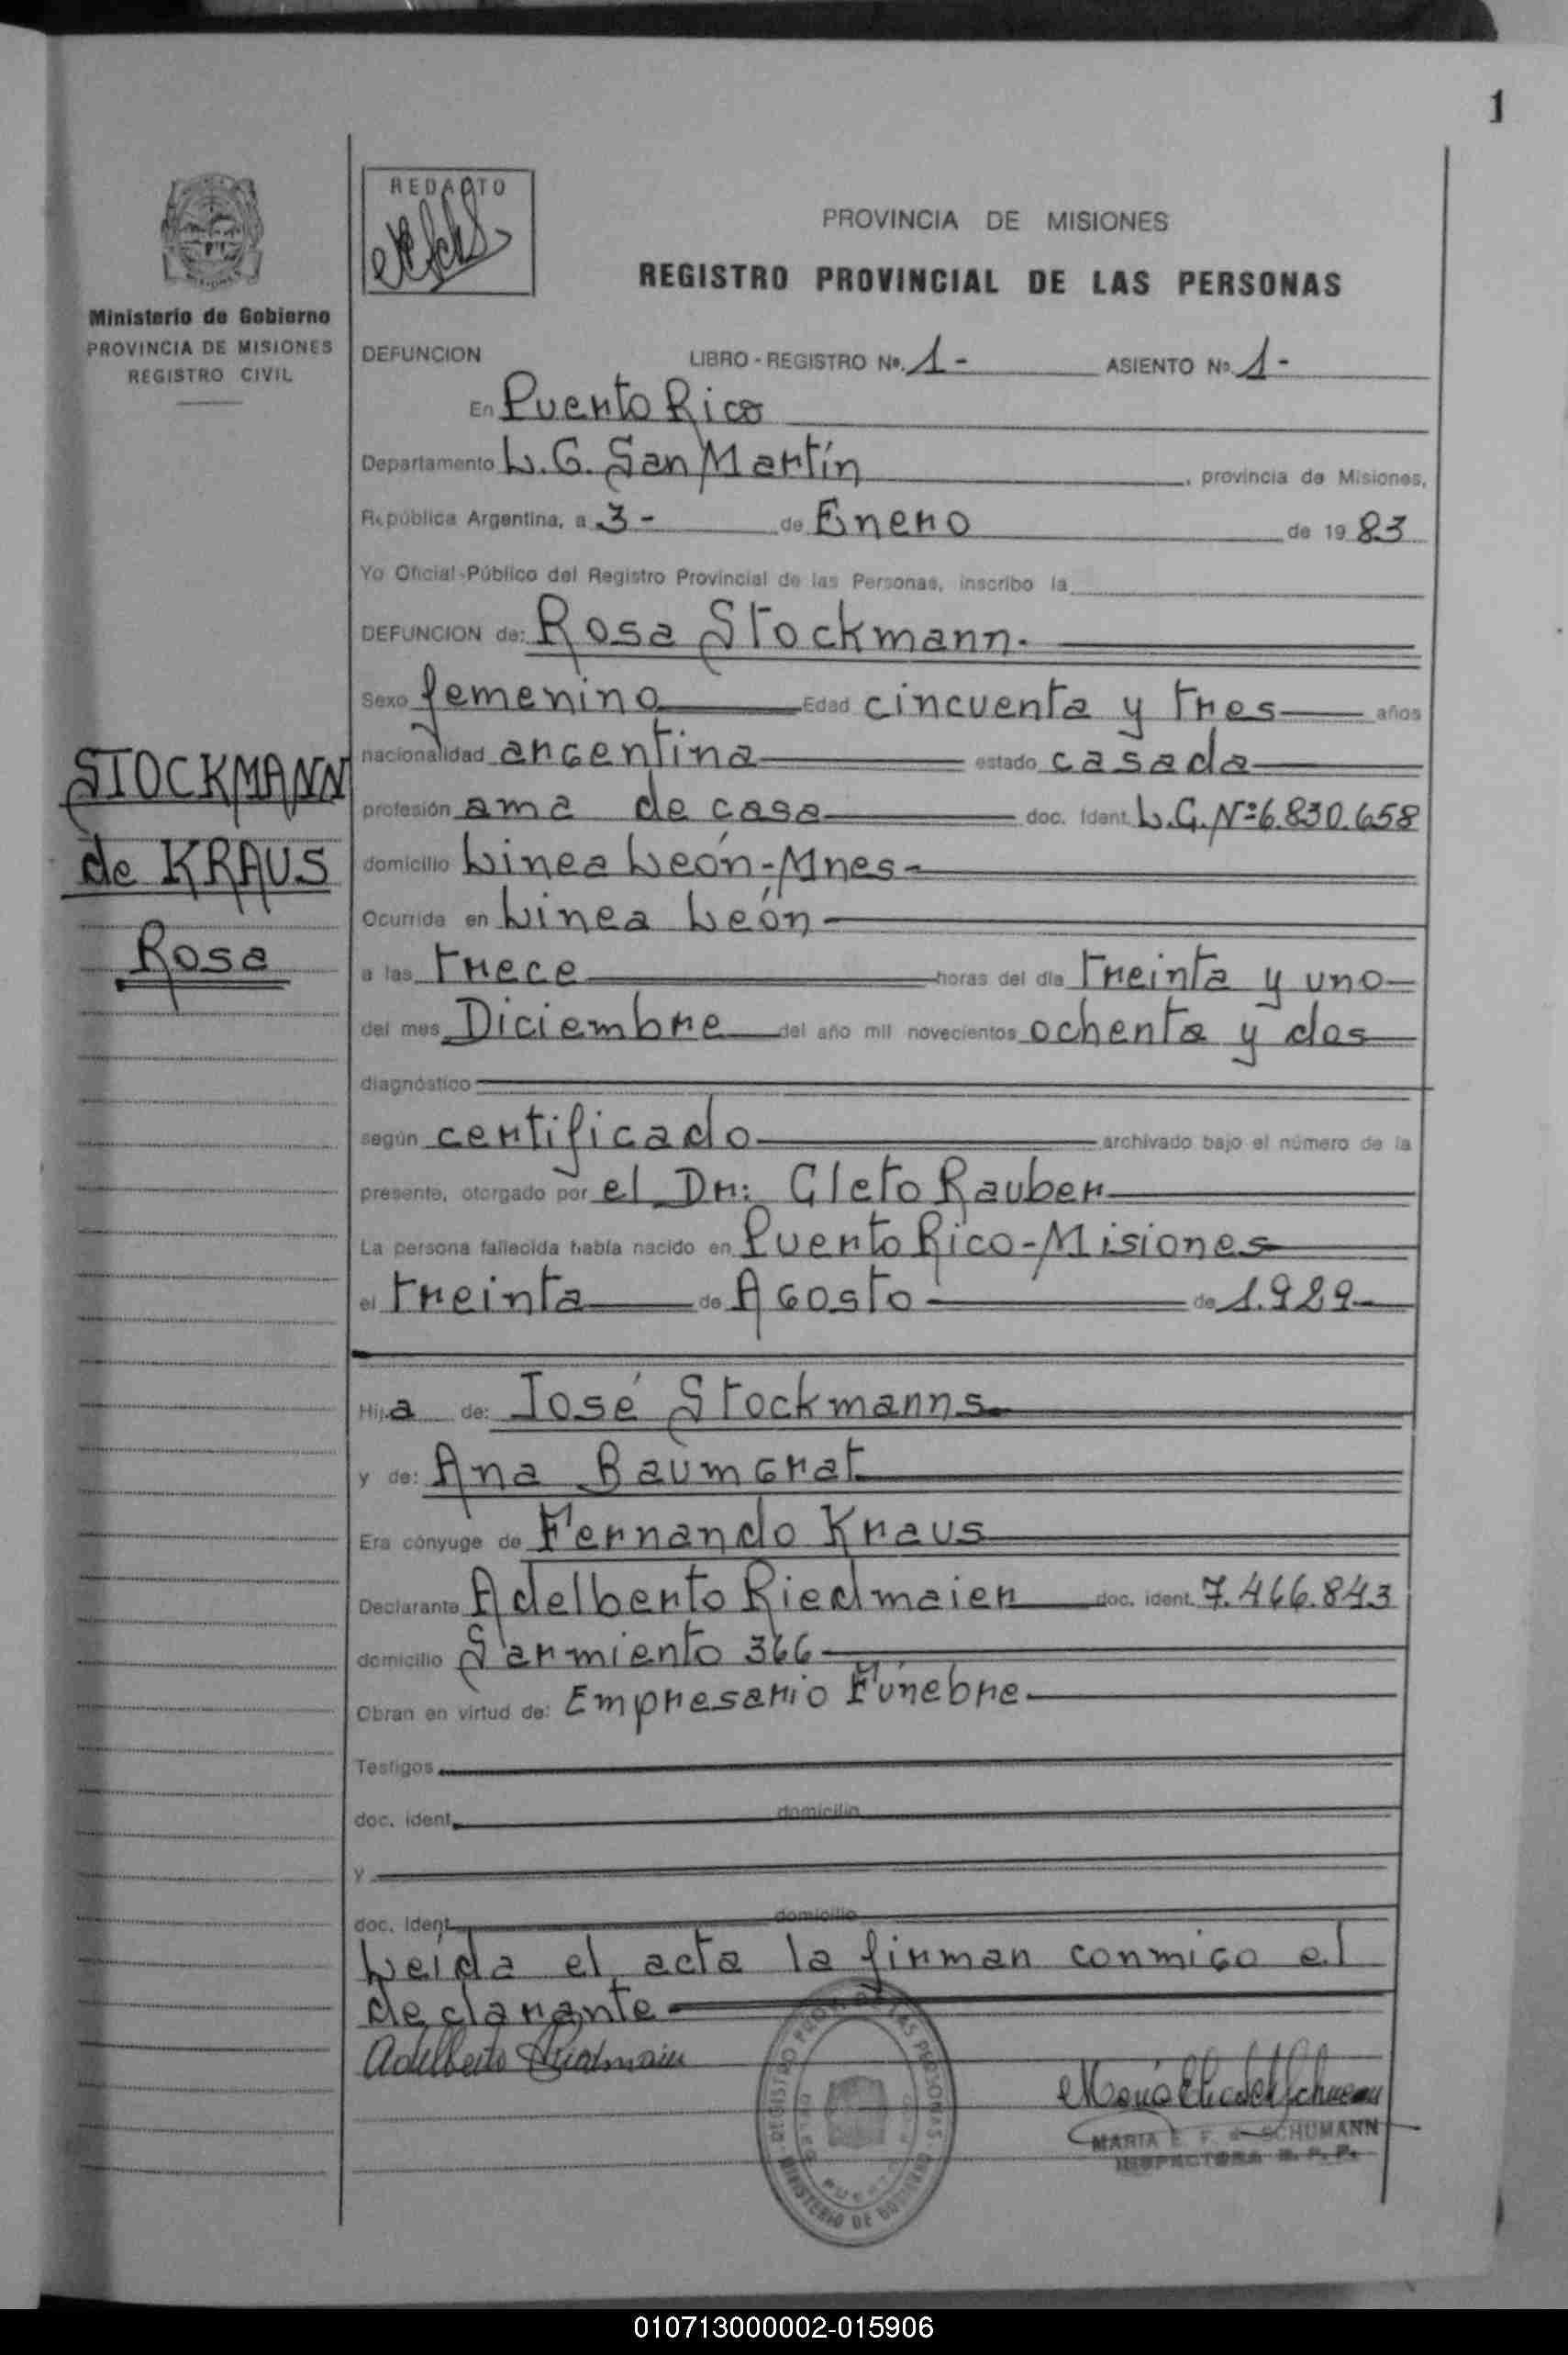 1
REDACTO
PROVINCIA DE MISIONES
REGISTRO PROVINCIAL DE LAS PERSONAS
Ministerio de Gobierno
PROVINCIA DE MISIONES
REGISTRO CIVIL
DEFUNCION LIBRO - REGISTRO Nº. 1- ASIENTO Nº. 1-
En Puerto Rico
Departamento L.G. San Martín, provincia de Misiones,
República Argentina, a 3- de Enero de 1983
Yo Oficial Público del Registro Provincial de las Personas, inscribo la
DEFUNCION de: Rosa Stockmann.
Sexo femenino Edad cincuenta y tres años
nacionalidad argentina estado casada
STOCKMANN
de KRAUS
Rosa
profesión ama de casa doc. Ident. L.C. Nº 6.830.658
domicilio Linea León-Mnes-
Ocurrida en Linea León
a las trece horas del día treinta y uno
del mes Diciembre del año mil novecientos ochenta y dos
diagnóstico
según certificado archivado bajo el número de la
presente, otorgado por el Dr: Cleto Rauber
La persona fallecida había nacido en Puerto Rico-Misiones
el treinta de Agosto de 1.929
Hija de: José Stockmanns
y de: Ana Baumgrat
Era cónyuge de Fernando Kraus
Declarante Adelberto Riedmaier doc. ident. 7.466.843
domicilio Sarmiento 366
Obran en virtud de: Empresario Fúnebre
Testigos
doc. ident. domicilio
y
doc. Ident. domicilio
Leída el acta la firman conmigo el
declarante
Adelberto Riedmaier
REGISTRO PROV. DE LAS PERSONAS
MINISTERIO DE GOBIERNO
MARIA E. F. de SCHUMANN
INSPECTORA R. P. P.
010713000002-015906